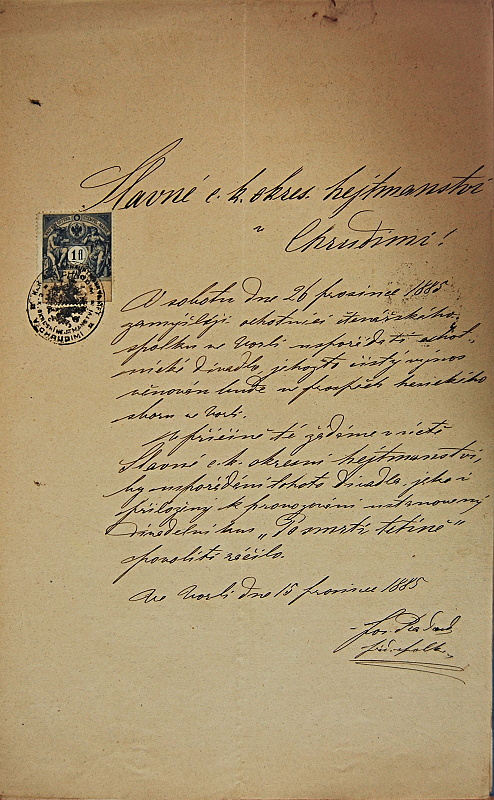 Slavné c. k. okres. hejtmanství
v
Chrudimi!
10
V sobotu dne 26 prosince 1885
zamýšlejí ochotníci čtenářského
spolku ve Vorli uspořádati ochot-
nické divadlo, jehož to čistý výnos
věnován bude ve prospěch hasičského
sboru ve Vorli.
V příčině té žádáme v úctě
Slavné c. k. okresní hejtmanství,
by uspořádání tohoto divadla, jako i
přiložený k provozování ustanovený
divadelní kus „Po smrti tetině"
povoliti ráčilo.
Ve Vorli dne 15 prosince 1885
Jos.